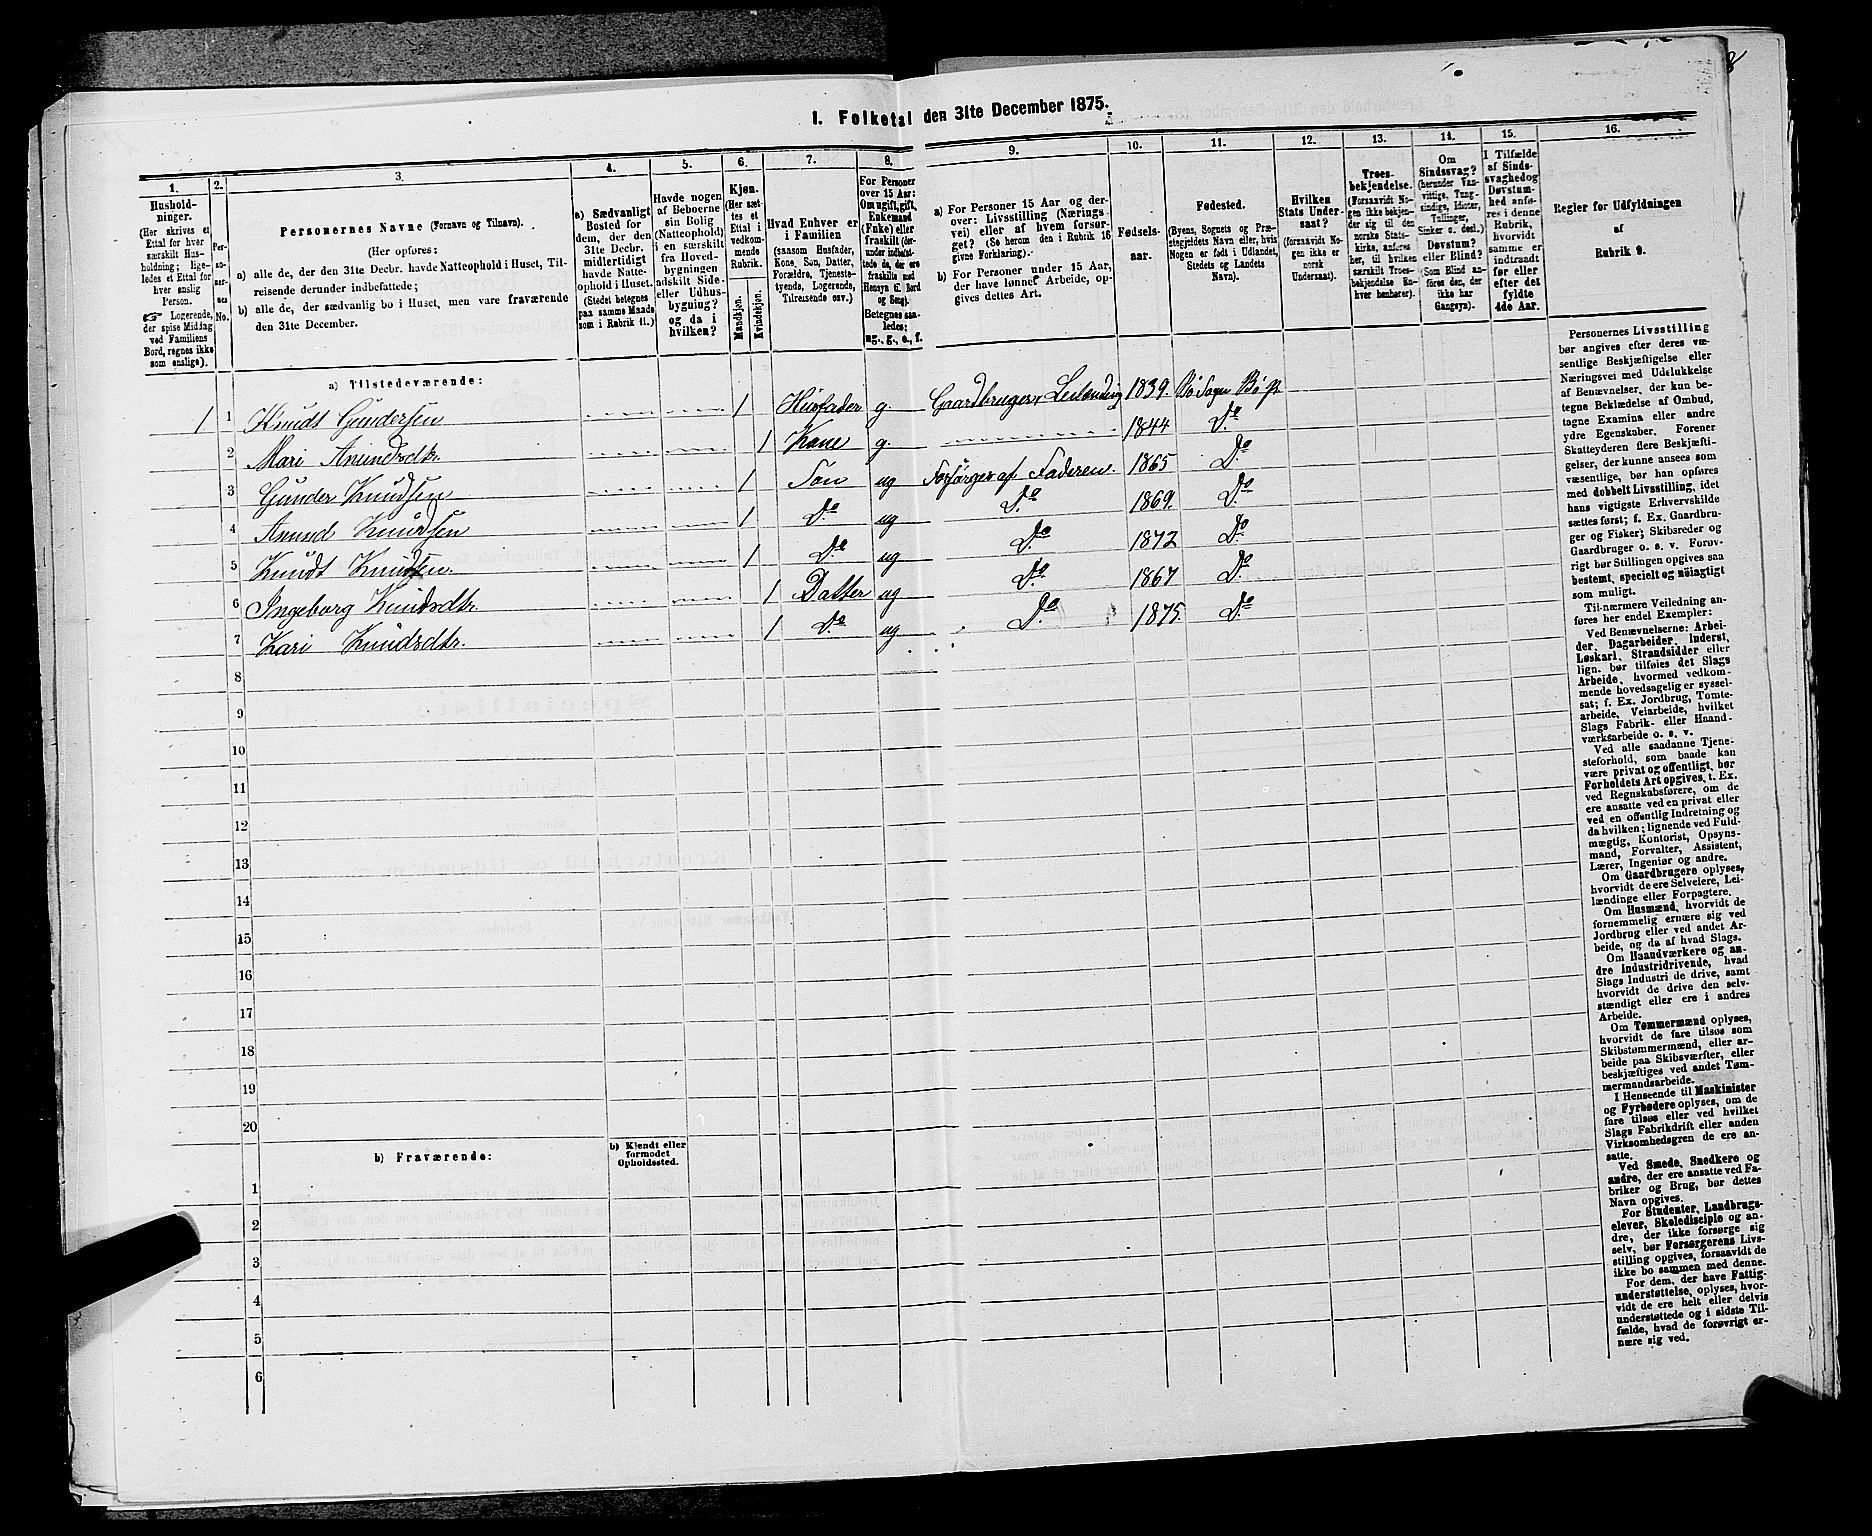 8
I. Folketal den 31te December 1875.
1.
Hushold-
ninger.
(Her skrives et
Ettal for hver
særskilt Hus-
holdning; lige-
ledes et Ettal for
hver enslig
Person.
☞ Logerende,
der spise Middag
ved Familiens
Bord, regnes ikke
som enslige).
2.
Per-
so-
ner-
nes
No.
3.
Personernes Navne (Fornavn og Tilnavn).
(Her opføres:
a) alle de, der den 31te Decbr. havde Natteophold i Huset, Til-
reisende derunder indbefattede;
b) alle de, der sædvanlig bo i Huset, men vare fraværende
den 31te December.
4.
a) Sædvanligt
Bosted for
dem, der den
31te Decbr.
midlertidigt
havde Natte-
ophold i Huset.
(Stedet betegnes
paa samme Maade
som i Rubrik 11.)
5.
Havde nogen
af Beboerne
sin Bolig
(Natteophold)
i en særskilt
fra Hoved-
bygningen
adskilt Side-
eller Udhus-
bygning?
og da i
hvilken?
6.
Kjøn.
(Her sæt-
tes et
Ettal i
vedkom-
mende
Rubrik.
Mandkjøn.
Kvindekjøn.
7.
Hvad Enhver er
i Familien
(saasom Husfader,
Kone, Søn, Datter,
Forældre, Tjeneste-
tyende, Logerende,
Tilreisende osv.)
8.
For Personer
over 15 Aar:
Om ugift, gift,
Enkemand
(Enke) eller
fraskilt (der-
under indbefat-
tede de, der ere
fraskilte med
Hensyn til Bord
og Seng).
Betegnes saa-
ledes:
ug., g., e., f.
9.
a) For Personer 15 Aar og der-
over: Livsstilling (Nærings-
vei) eller af hvem forsør-
get? (Se herom den i Rubrik 16
givne Forklaring).
b) For Personer under 15 Aar,
der have lønnet Arbeide, op-
gives dettes Art.
10.
Fødsels-
aar.
11.
Fødested.
(Byens, Sognets og Præ-
stegjeldets Navn eller, hvis
Nogen er født i Udlandet,
Stedets og Landets
Navn).
12.
Hvilken
Stats Under-
saat?
(forsaavidt No-
gen ikke er
norsk
Undersaat).
13.
Troes-
bekjendelse.
(Forsaavidt No-
gen ikke bekjen-
der sig til den
norske Stats-
kirke, anføres
her, til hvilken
særskilt Troes-
bekjendelse En-
hver henhører).
14.
Om
Sindssvag?
(herunder Van-
vittige, Tung-
sindige, Idioter,
Tullinger,
Sinker o. desl.)
Døvstum?
eller Blind?
(Som Blind an-
føres den, der
ikke har
Gangsyn).
15.
I Tilfælde
af Sinds-
svaghed og
Døvstum-
hed anfø-
res i denne
Rubrik,
hvorvidt
samme er
indtraadt
før eller
efter det
fyldte
4de Aar.
16.
Regler for Udfyldningen
af
Rubrik 9.
a) Tilstedeværende:
1 1 Knudt Gundersen 1 Husfader g. Gaardbruger Leilænding 1839. Bø Sogn Bø P
2 Mari Anundsdtr. 1 Kone g. 1844 Do
3 Gunder Knudsen 1 Søn ug Forsørges af Faderen. 1865 Do
4 Anund Knudsen 1 Do ug Do 1869. Do
5 Knudt Knudsen. 1 Do ug Do 1872 Do
6 Ingeborg Knudsdtr. 1 Datter ug Do 1867 Do
7 Kari Knudsdtr. 1 Do ug Do 1875. Do
8
9
10
11
12
13
14
15
16
17
18
19
20
b) Fraværende:
b) Kjendt eller
formodet
Opholdssted.
1
2
3
4
5
6
Personernes Livsstilling
bør angives efter deres væ-
sentlige Beskjæftigelse eller
Næringsvei med Udelukkelse
af Benævnelser, der kun be-
tegne Beklædelse af Ombud,
tagne Examina eller andre
ydre Egenskaber. Forener
Skatteyderen flere Beskjæfti-
gelser, der kunne ansees som
væsentlige, bør han opføres
med dobbelt Livsstilling, idet
hans vigtigste Erhvervskilde
sættes først; f. Ex. Gaardbru-
ger og Fisker; Skibsreder og
Gaardbruger o. s. v. Forøv-
rigt bør Stillingen opgives saa
bestemt, specielt og nøiagtigt
som muligt.
Til nærmere Veiledning an-
føres her endel Exempler:
Ved Benævnelserne: Arbei-
der, Dagarbeider, Inderst,
Løskarl, Strandsidder eller
lign. bør tilføies det Slags
Arbeide, hvormed vedkom-
mende hovedsagelig er syssel-
sat; f. Ex. Jordbrug, Tomte-
arbeide, Veiarbeide, hvilket
Slags Fabrik- eller Haand-
værksarbeide o. s. v.
Ved alle saadanne Tjene-
steforhold, som baade kan
være privat og offentligt, bør
Forholdets Art opgives, t. Ex.
ved Regnskabsførere, om de
ere ansatte ved en privat eller
ved en offentlig Indretning og
da hvilken; lignende ved Fuld-
mægtig, Kontorist, Opsyns-
mand, Forvalter, Assistent,
Lærer, Ingeniør og andre.
Om Gaardbrugere oplyses,
hvorvidt de ere Selveiere, Lei-
lændinge eller Forpagtere.
Om Husmænd, hvorvidt de
fornemmelig ernære sig ved
Jordbrug eller ved andet Ar-
beide, og da af hvad Slags.
Om Haandværkere og an-
dre Industridrivende, hvad
Slags Industri de drive, samt
hvorvidt de drive den selv-
stændigt eller ere i andres
Arbeide.
Om Tømmermænd oplyses,
hvorvidt de fare tilsøs som
Skibstømmermænd, eller ar-
beide paa Skibsværfter, eller
beskjæftiges ved andet Tøm-
mermandsarbeide.
I Henseende til Maskinister
og Fyrbødere oplyses, om de
fare tilsøs eller ved hvilket
Slags Fabrikdrift eller anden
Virksomhedsgren de ere an-
satte.
Ved Smede, Snedkere og
andre, der ere ansatte ved Fa-
briker og Brug, bør dettes
Navn opgives.
For Studenter, Landbrugs-
elever, Skoledisciple og an-
dre, der ikke forsørge sig
selv, bør Forsørgerens Livs-
stilling opgives, forsaavidt de
ikke bo sammen med denne.
For dem, der have Fattig-
understøttelse, oplyses, hvor-
vidt de ere helt eller delvis
understøttede og i sidste Til-
fælde, hvad de forøvrigt er-
nære sig ved.